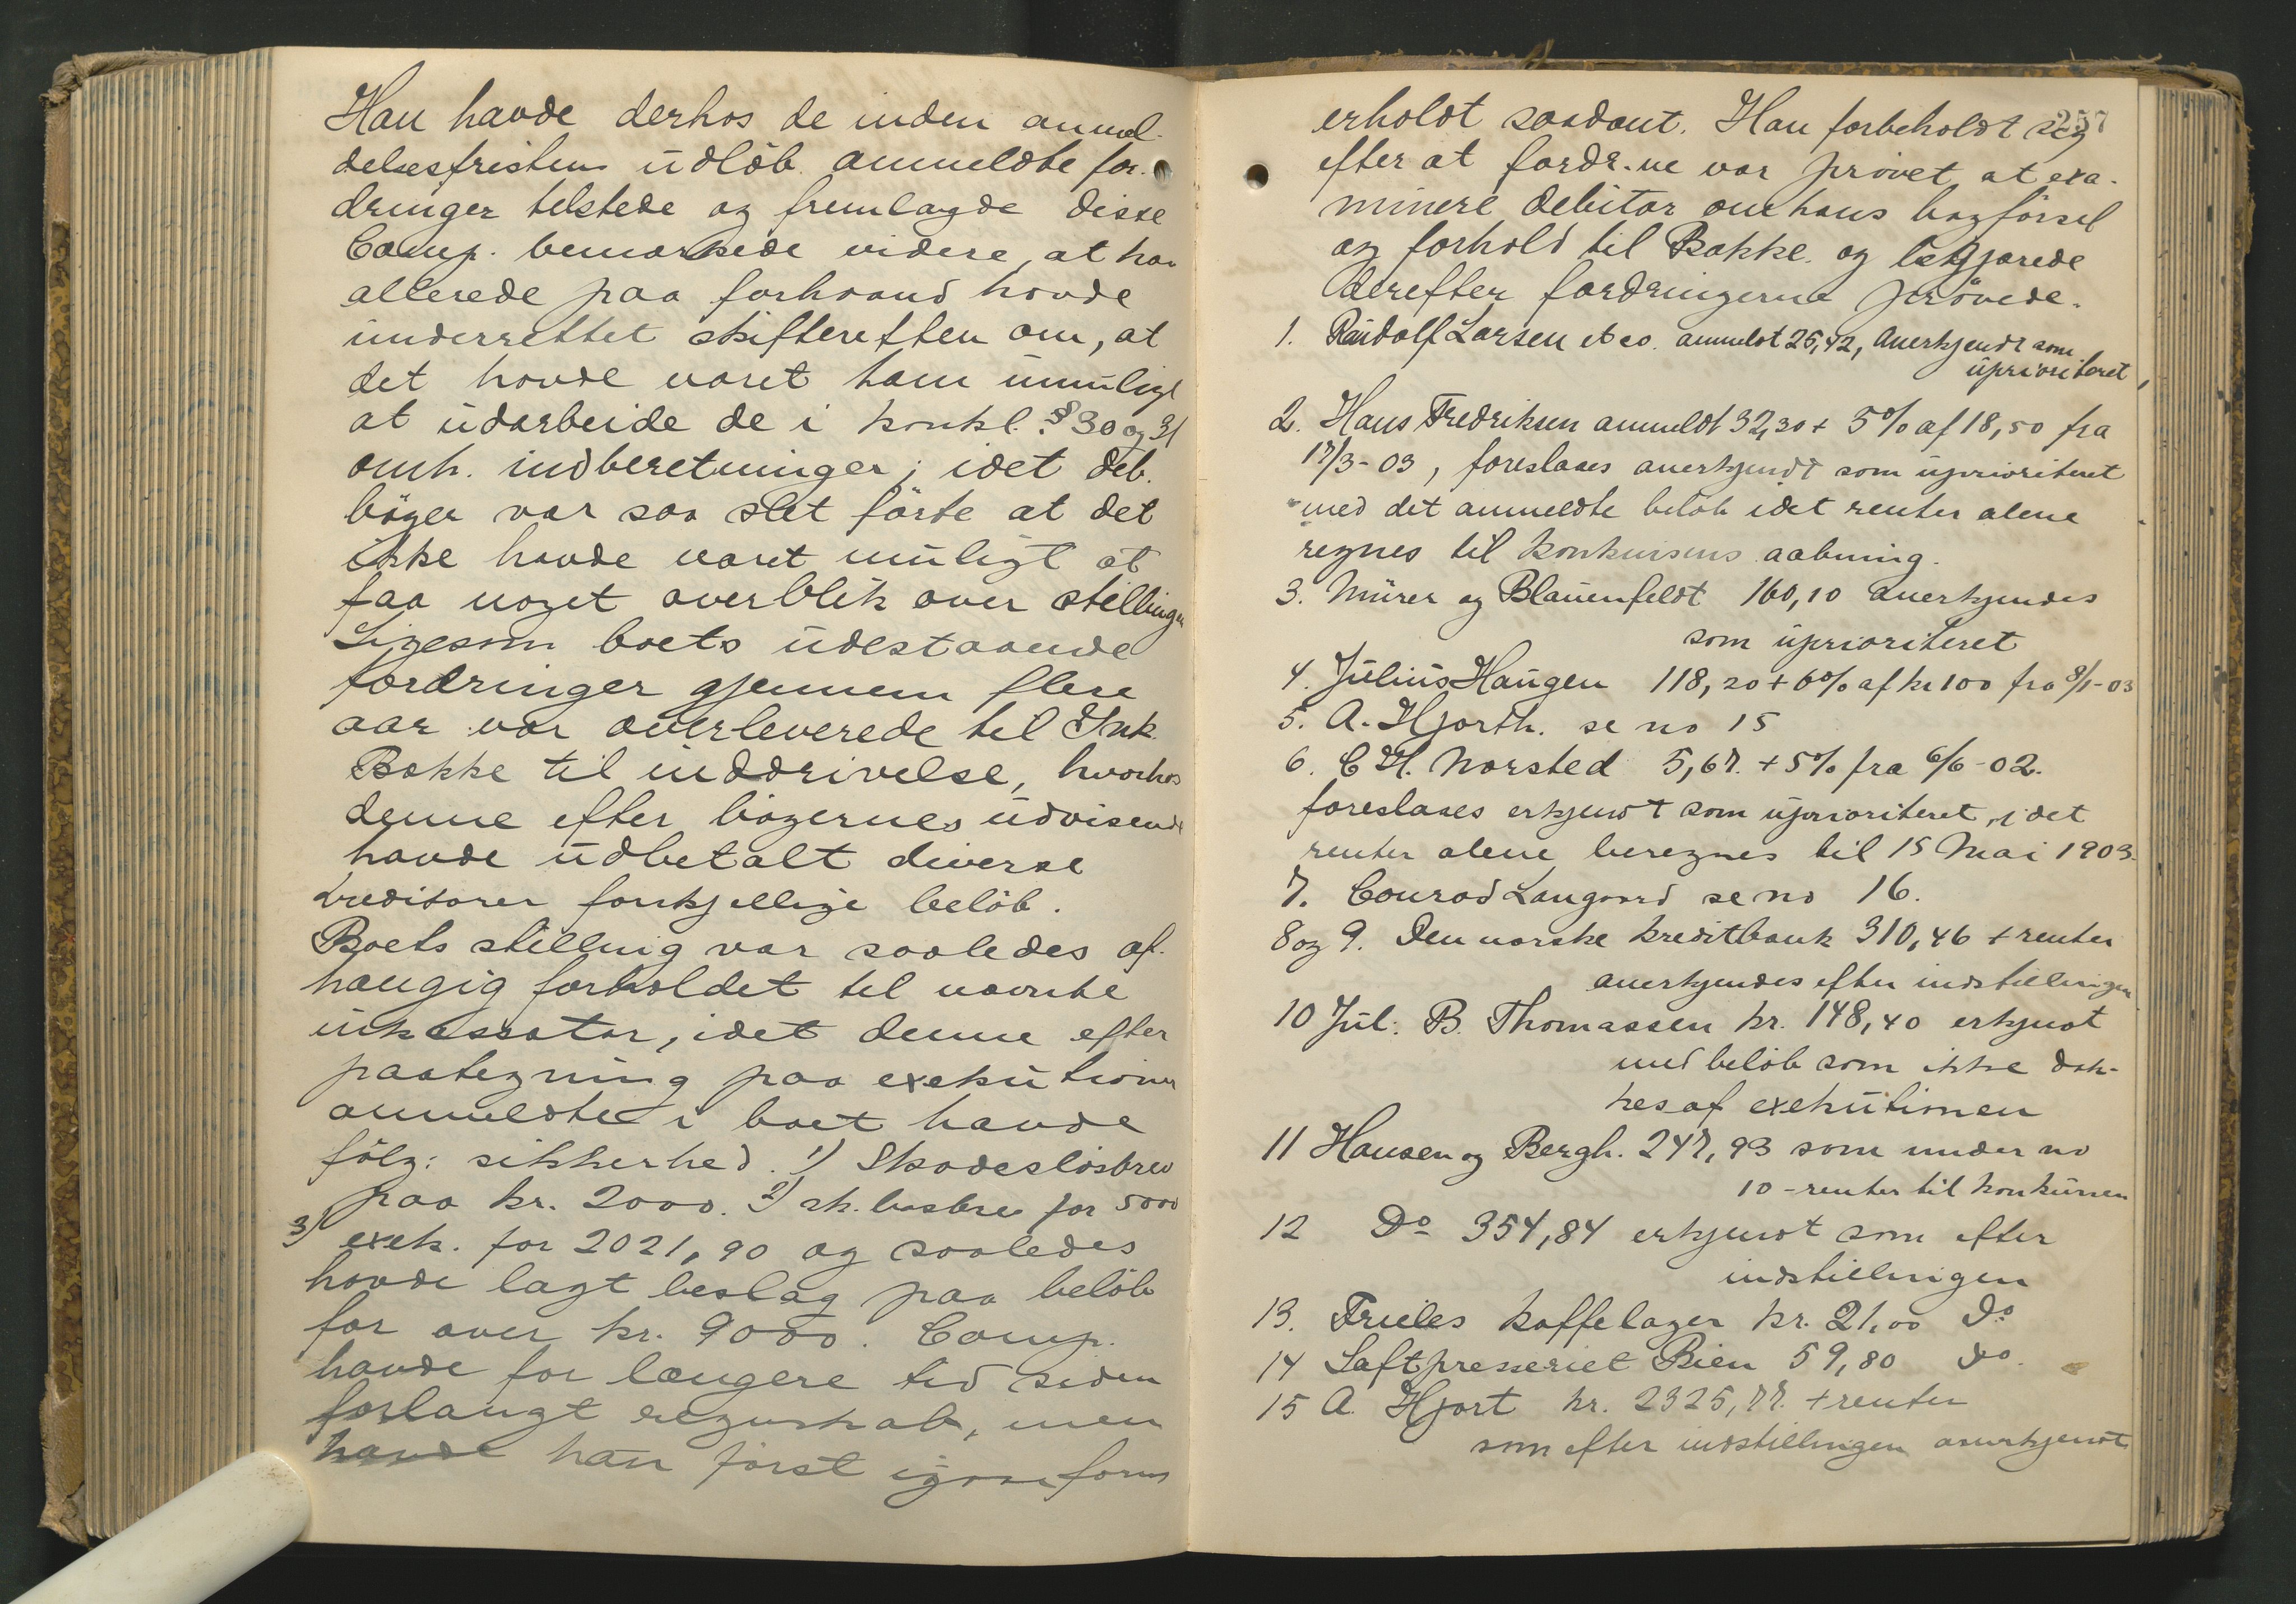 Han havde derhos de inden anmel-
delsesfristens udløb anmeldte for-
dringer tilstede og fremlagde disse
Comp. bemærkede videre, at han
allerede paa forhaand havde
underrettet skifteretten om, at
det havde været ham umuligt
at udarbeide de i konkl. § 30 og 31
omh. indberetninger; idet deb.
bøger var saa slet førte at det
ikke havde været muligt at
faa noget overblik over stillingen
Ligesom boets udestaaende
fordringer gjennem flere
aar var overleverede til Ink.
Bakke til inddrivelse, hvorhos
denne efter bøgernes udvisende
havde udbetalt diverse
kreditorer forskjellige beløb.
Boets stilling var saaledes af-
hængig forholdet til nævnte
inkassator, idet denne efter
paategning paa exekutionen
anmeldte i boet havde
følg: sikkerhed. 1) Skadesløsbrev
paa kr. 2000. 2) sk.løsbrev for 5000
3) exek. for 2021,90 og saaledes
havde lagt beslag paa beløb
for over kr. 9000. Comp.
havde for længere tid siden
forlangt regnskab, men
havde han først igaar form
257
erholdt saadant. Han forbeholdt sig
efter at fordr.ne var prøvet at exa-
minere debitor om hans bogførsel
og forhold til Bakke. og
derefter fordringerne prøvede.
1. Randolf Larsen et co. anmeldt 25,42, Anerkjendt som
uprioriteret,
2. Hans Fredriksen anmeldt 32,30 + 5% af 18,50 fra
17/3-03, foreslaaes anerkjendt som uprioriteret
med det anmeldte beløb idet renter alene
regnes til konkursens aabning.
3. Mürer og Blauenfeldt 160,10 anerkjendes
som uprioriteret
4. Julius Haugen 118,20 + 6% af kr 100 fra 8/1-03
5. A. Hjorth. se no 15
6. C H. Norsted 5,67. + 5% fra 6/6-02.
foreslaaes erkjendt som uprioriteret, idet
renter alene beregnes til 15 Mai 1903.
7. Conrad Langaard se no 16.
8 og 9. Den norske kreditbank 310,46 + renter
anerkjendes efter indstillingen
10 Jul. B. Thomassen kr. 148,40 erkjendt
med beløb som ikke dæk-
kes af exekutionen
11 Hansen og Bergh. 247,93 som under no
10 - renter til konkursen
12 Do 354,84 erkjendt som efter
indstillingen
13. Frieles kaffelager kr. 21,00 Do
14 Saftpresseriet Bien 59,80 Do.
15 A. Hjort kr. 2325,77. + renter
som efter indstillingen anerkjendt